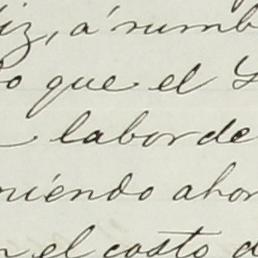 iz, á rumb
o que el
labor de
niendo ahor
el costo d